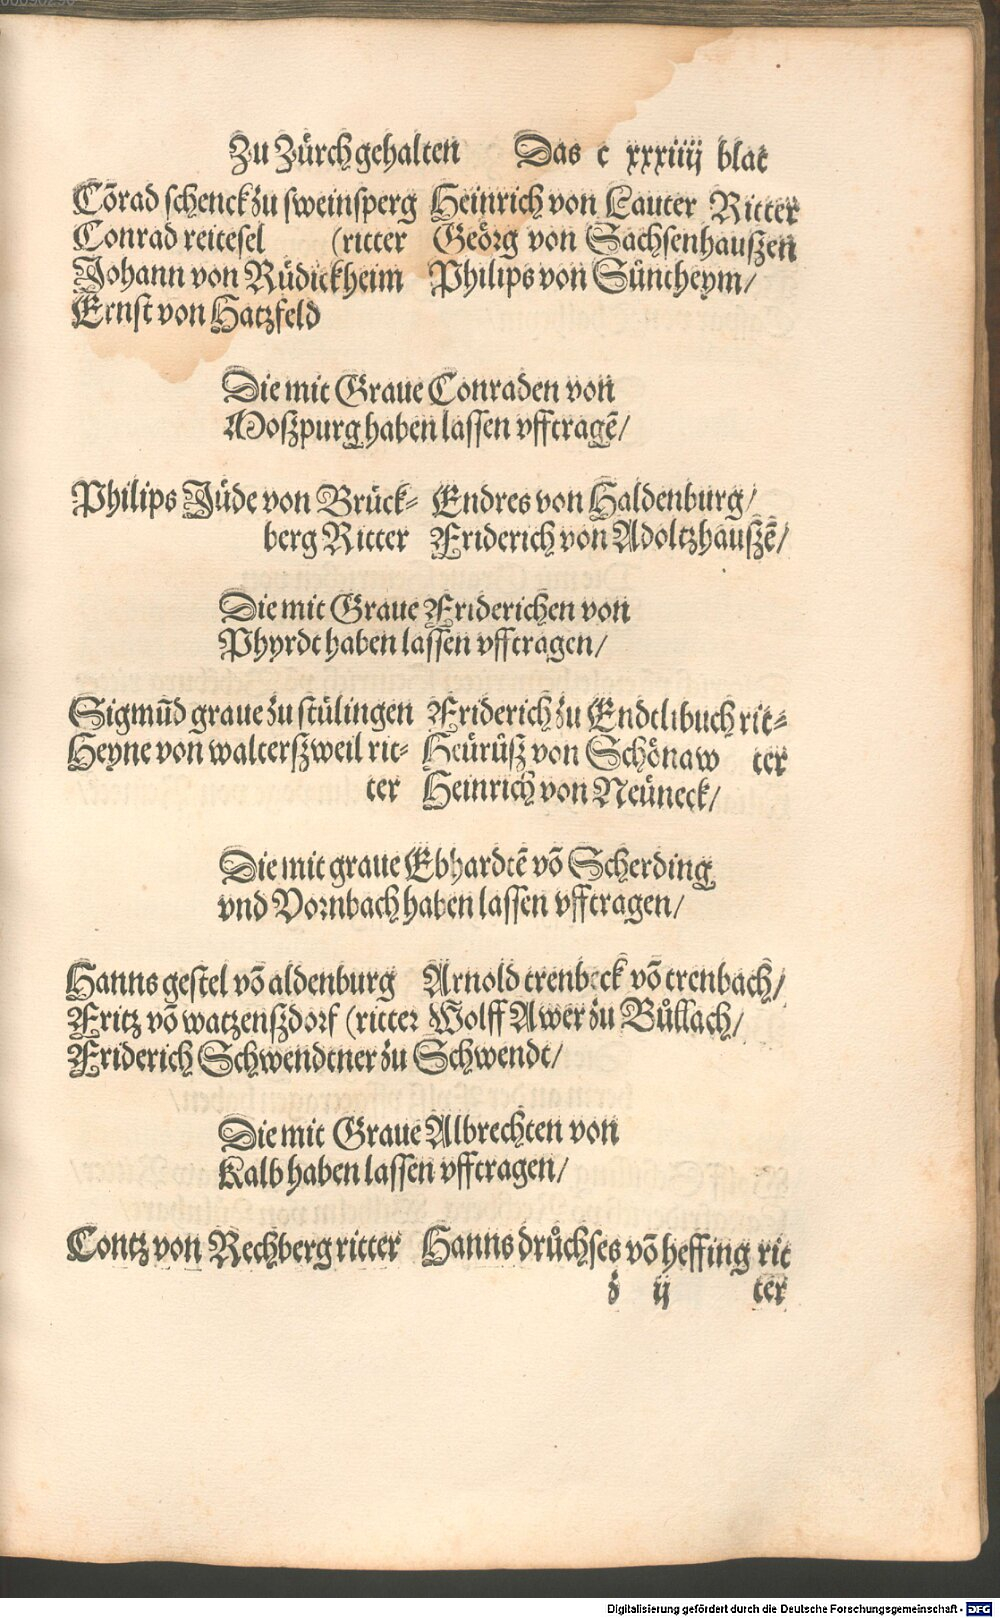 Zu Zürch gehalten Das c xxxiiij blat
Cõrad schenck zu sweinsperg
Conrad reitesel (ritter
Johann von Rüdickheim
Ernst von Hatzfeld
Heinrich von Lauter Ritter
Geörg von Sachsenhauszen
Philips von Süntheym/
Die mit Graue Conraden von
Moszpurg haben lassen vfftragẽ/
Philips Jüde von Brück-
berg Ritter
Endres von Haldenburg/
Friderich von Adoltzhauszẽ/
Die mit Graue Friderichen von
Phyrdt haben lassen vfftragen/
Sigmũd graue zu stülingen
Heyne von walterszweil rit-
ter
Friderich zu Endtlibuch rit-
Heürüsz von Schönaw ter
Heinrich von Neüneck/
Die mit graue Ebhardtẽ võ Scherding
vnd Vornbach haben lassen vfftragen/
Hanns gestel võ aldenburg
Fritz võ watzenszdorf (ritter
Friderich Schwendtner zu Schwendt/
Arnold trenbeck võ trenbach/
Wolff Awer zu Bůllach/
Die mit Graue Albrechten von
Kalb haben lassen vfftragen/
Contz von Rechberg ritter
Hanns drůchses võ heffing rit
z ij ter
Digitalisierung gefördert durch die Deutsche Forschungsgemeinschaft - DFG